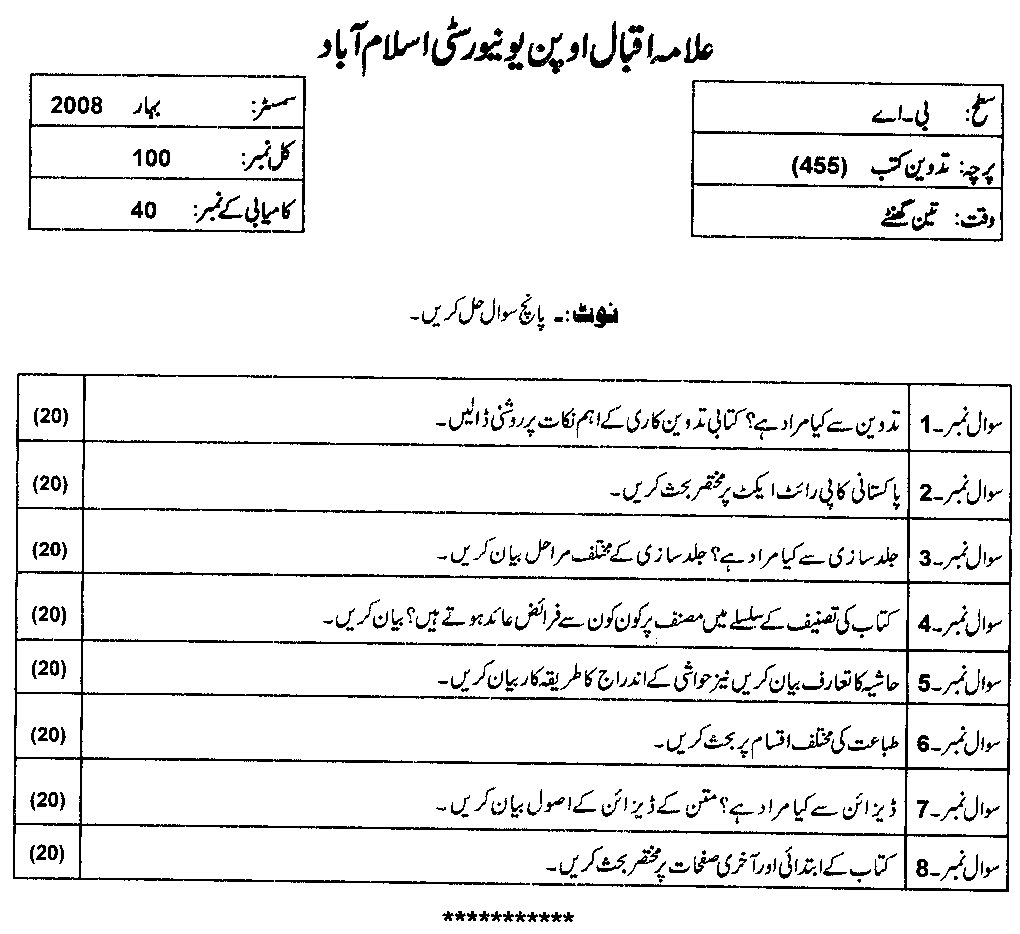 علامہ اقبال اوپن یونیورسٹی اسلام آباد
سطح: بی۔اے
پرچہ: تدوین کتب (455)
وقت: تین گھنٹے
سمسٹر: بہار 2008
کل نمبر: 100
کامیابی کے نمبر: 40
نوٹ:۔ پانچ سوال حل کریں۔
سوال نمبر۔1 تدوین سے کیا مراد ہے؟ کتابی تدوین کاری کے اہم نکات پر روشنی ڈالیں۔ (20)
سوال نمبر۔2 پاکستانی کاپی رائٹ ایکٹ پر مختصر بحث کریں۔ (20)
سوال نمبر۔3 جلد سازی سے کیا مراد ہے؟ جلد سازی کے مختلف مراحل بیان کریں۔ (20)
سوال نمبر۔4 کتاب کی تصنیف کے سلسلے میں مصنف پر کون کون سے فرائض عائد ہوتے ہیں؟ بیان کریں۔ (20)
سوال نمبر۔5 حاشیہ کا تعارف بیان کریں نیز حواشی کے اندراج کا طریقہ کار بیان کریں۔ (20)
سوال نمبر۔6 طباعت کی مختلف اقسام پر بحث کریں۔ (20)
سوال نمبر۔7 ڈیزائن سے کیا مراد ہے؟ متن کے ڈیزائن کے اصول بیان کریں۔ (20)
سوال نمبر۔8 کتاب کے ابتدائی اور آخری صفحات پر مختصر بحث کریں۔ (20)
***********